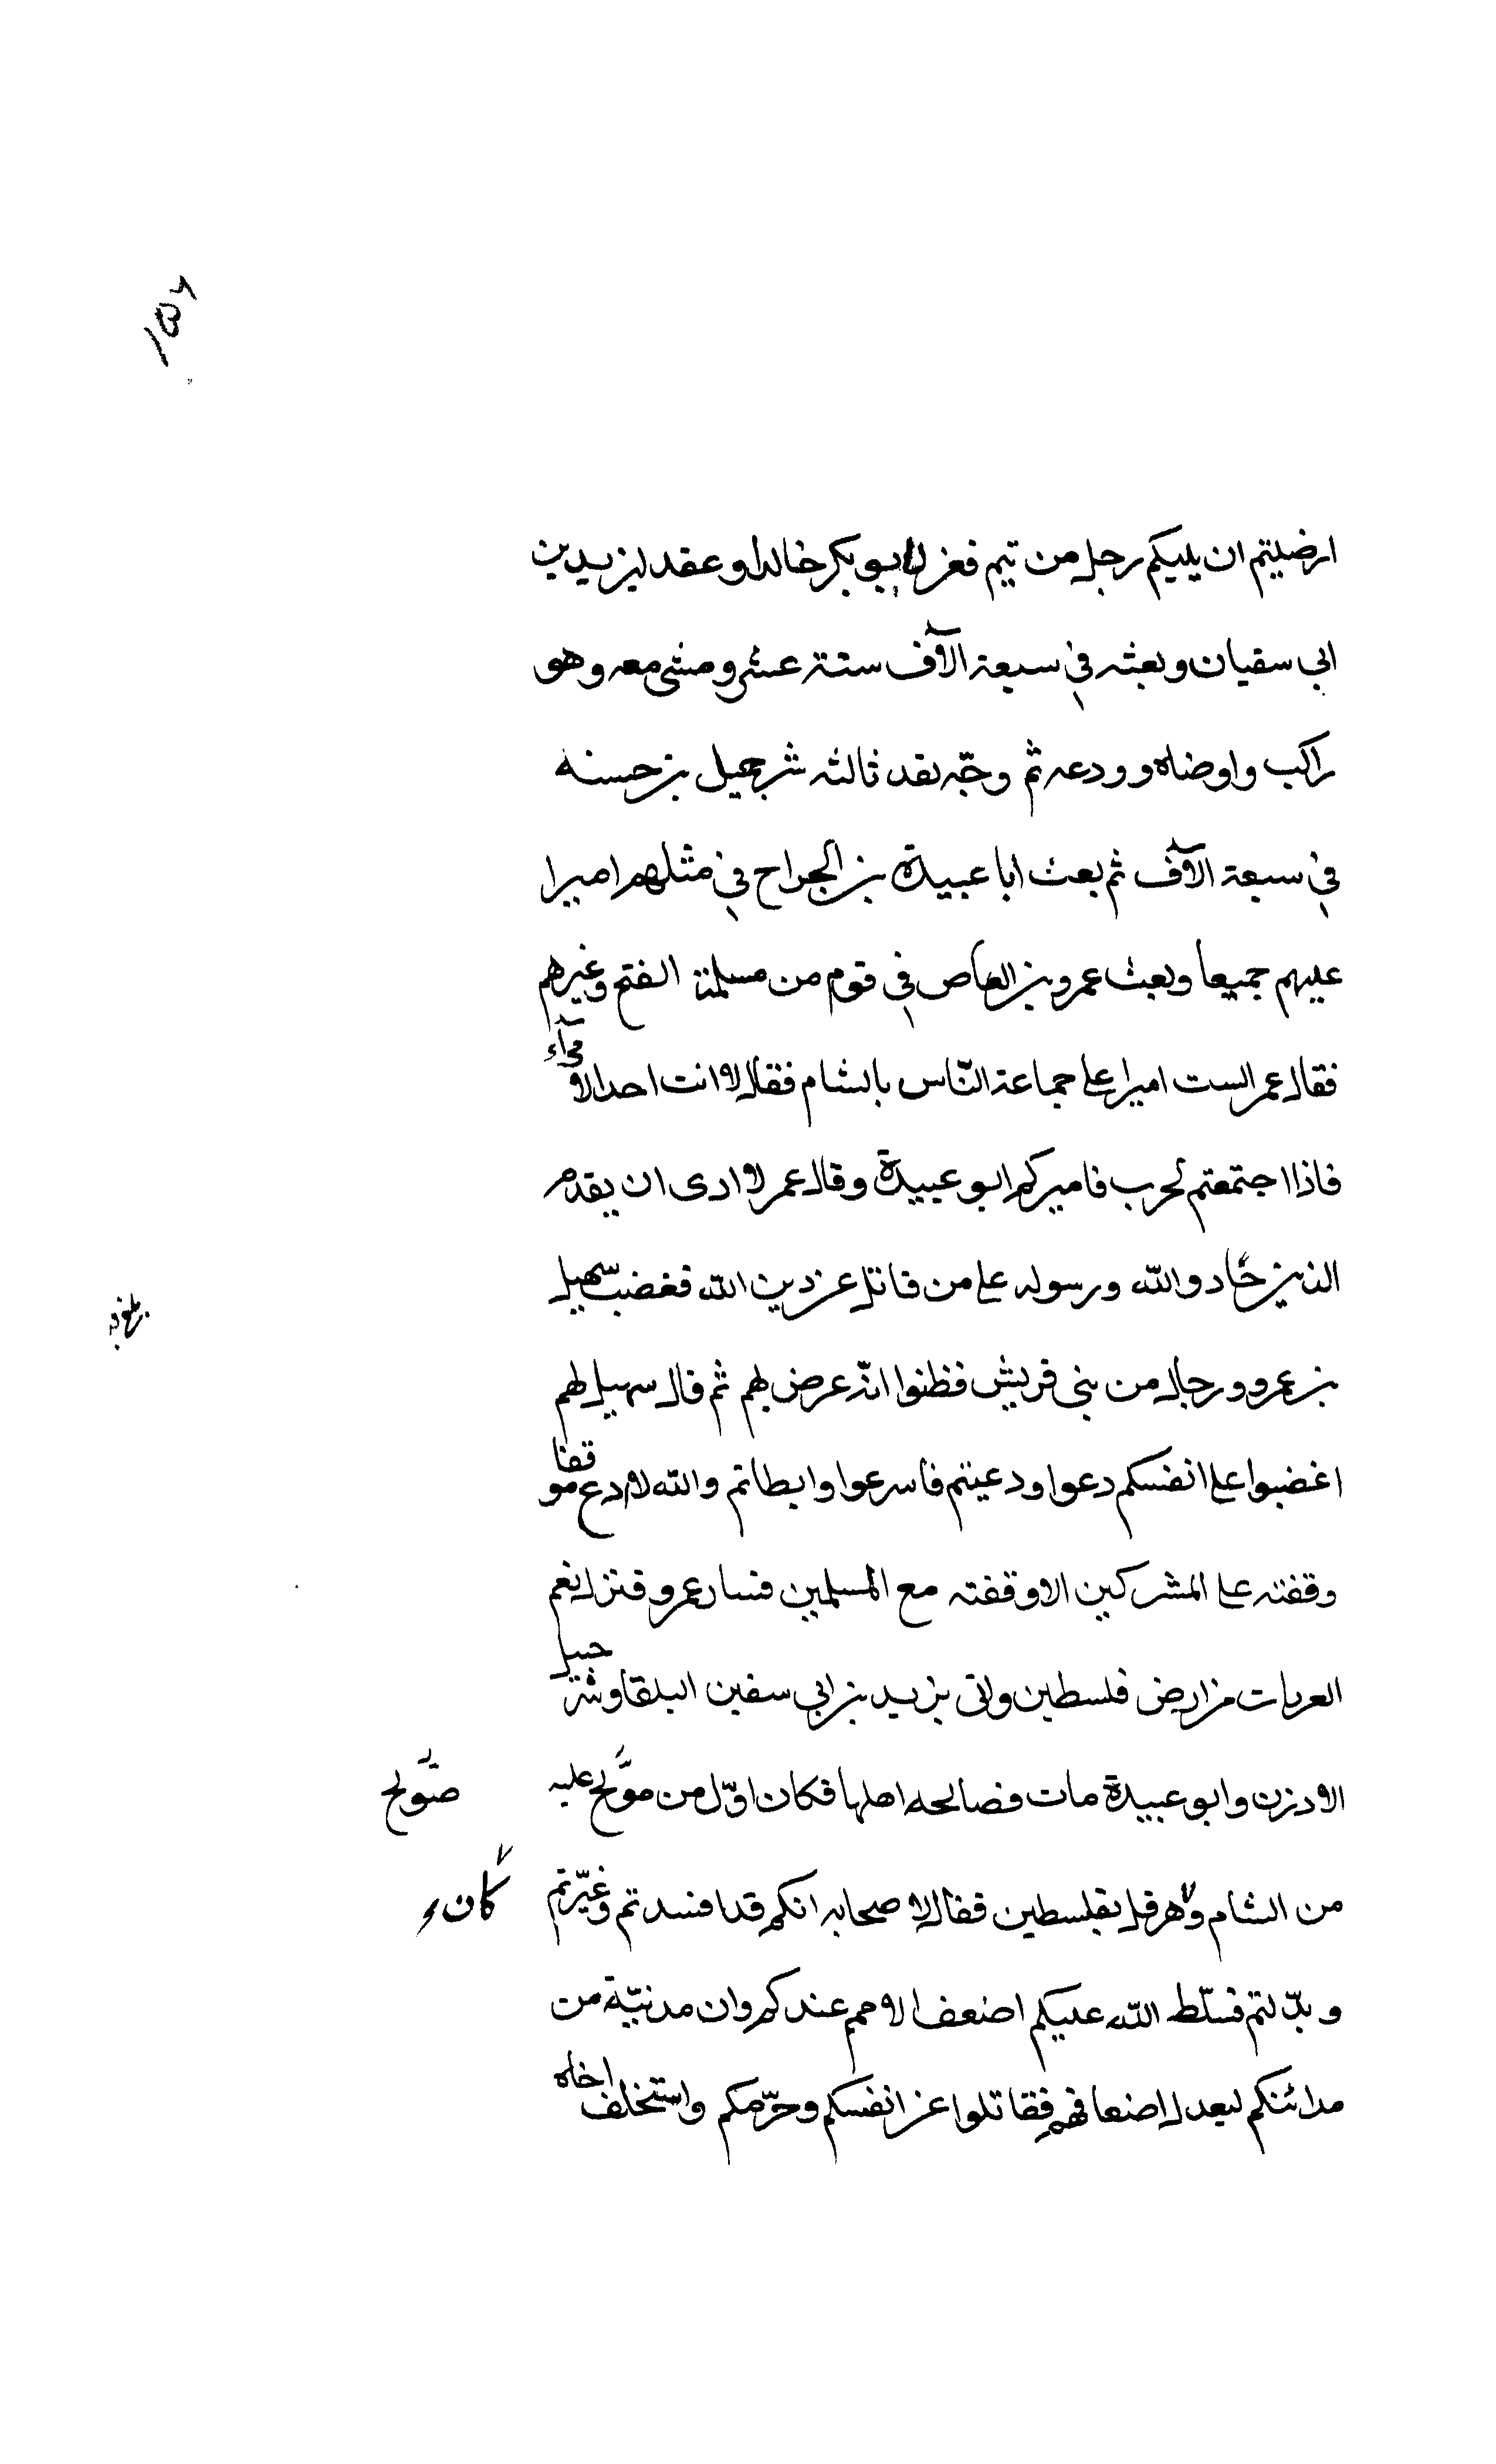 ١٥٦
ارضيتم ان يليكم رجل من تيم فعزل ابو بكر خالدا وعقد ليزيد بن
ابي سفيان وبعثه في سبعة الآف ستة عشر ومشى معه وهو
راكب واوصاه وودعه ثم وجّه بعد ثالثه شرحبيل بن حسنه
في سبعة الآف ثم بعث ابا عبيدة بن الجراح في مثلهم اميرا
عليهم جميعا وبعث عمرو بن العاص في قوم من مسلمة الفتح وغيرهم
فقال عمر الست اميرا على جماعة النّاس بالشام فقال لا انت احد الامرآء
فاذا اجتمعتم لحرب فاميركم ابو عبيدة وقال عمر لا ارى ان يقدم
الذين حادوا الله ورسوله على من قاتل عن دين الله فغضب سهيل
بن عمرو ورجال من بنى قريش فظنوا انّه عرض بهم ثم قال سهيل لهم
اغضبوا على انفسكم دعوا ودعيتم فاسرعوا وابطاتم والله لا ادع موقفا
وقفته على المشركين الا وقفته مع المسلمين فسار عمرو فنزل بغم
العربات من ارض فلسطين واتى يزيد بن ابي سفين البلقا وشرحبيل
الاردن وابو عبيدة مات فصالحه اهلها فكان اوّل من موّلح عليه
صوّلح
من الشام وهرقل بفلسطين فقال لاصحابه انكم قد افسدتم وغيّرتم
كان
وبدّلتم فسلّط الله عليكم اضعف الامم عندكم وان مدنيّة من
مدائنكم ليعدل اضعافهم فقاتلوا عن انفسكم وحرّمكم واستخلف اخاه